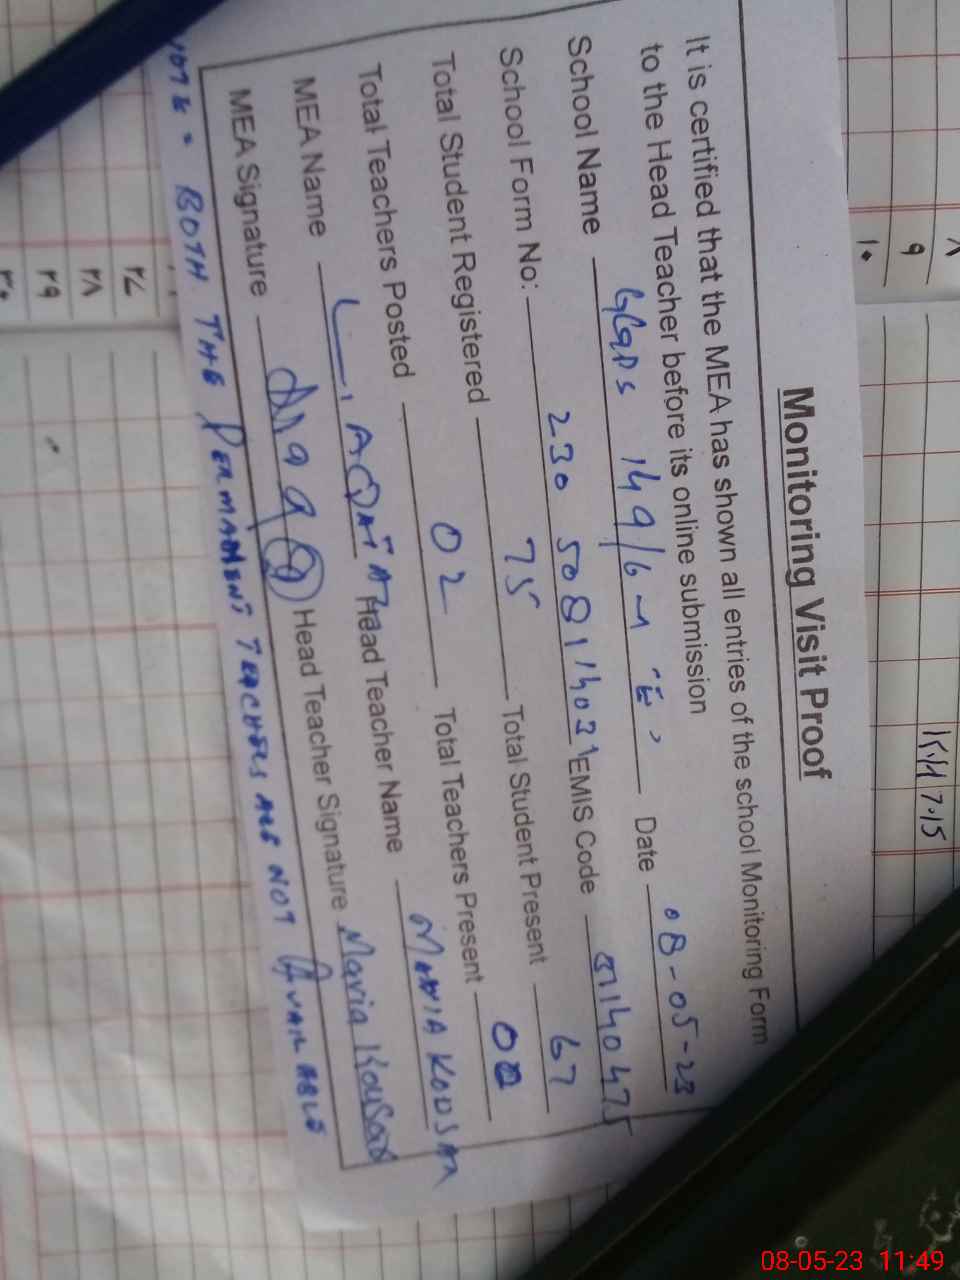 Monitoring Visit Proof
It is certified that the MEA has shown all entries of the school Monitoring Form
to the Head Teacher before its online submission
School Name GGPS 149/6-R Date 08-05-23
School Form No: 230 50811403 EMIS Code 31140475
Total Student Registered 75 Total Student Present 67
Total Teachers Posted 02 Total Teachers Present 00
MEA Name Head Teacher Name MARIA KOUSAR
MEA Signature Head Teacher Signature Maria Kousar
BOTH THE PERMANENT TEACHERS ARE NOT AVAILABLE
۹
۱۰
۲۷
۲۸
۲۹
۳۰
08-05-23 11:49